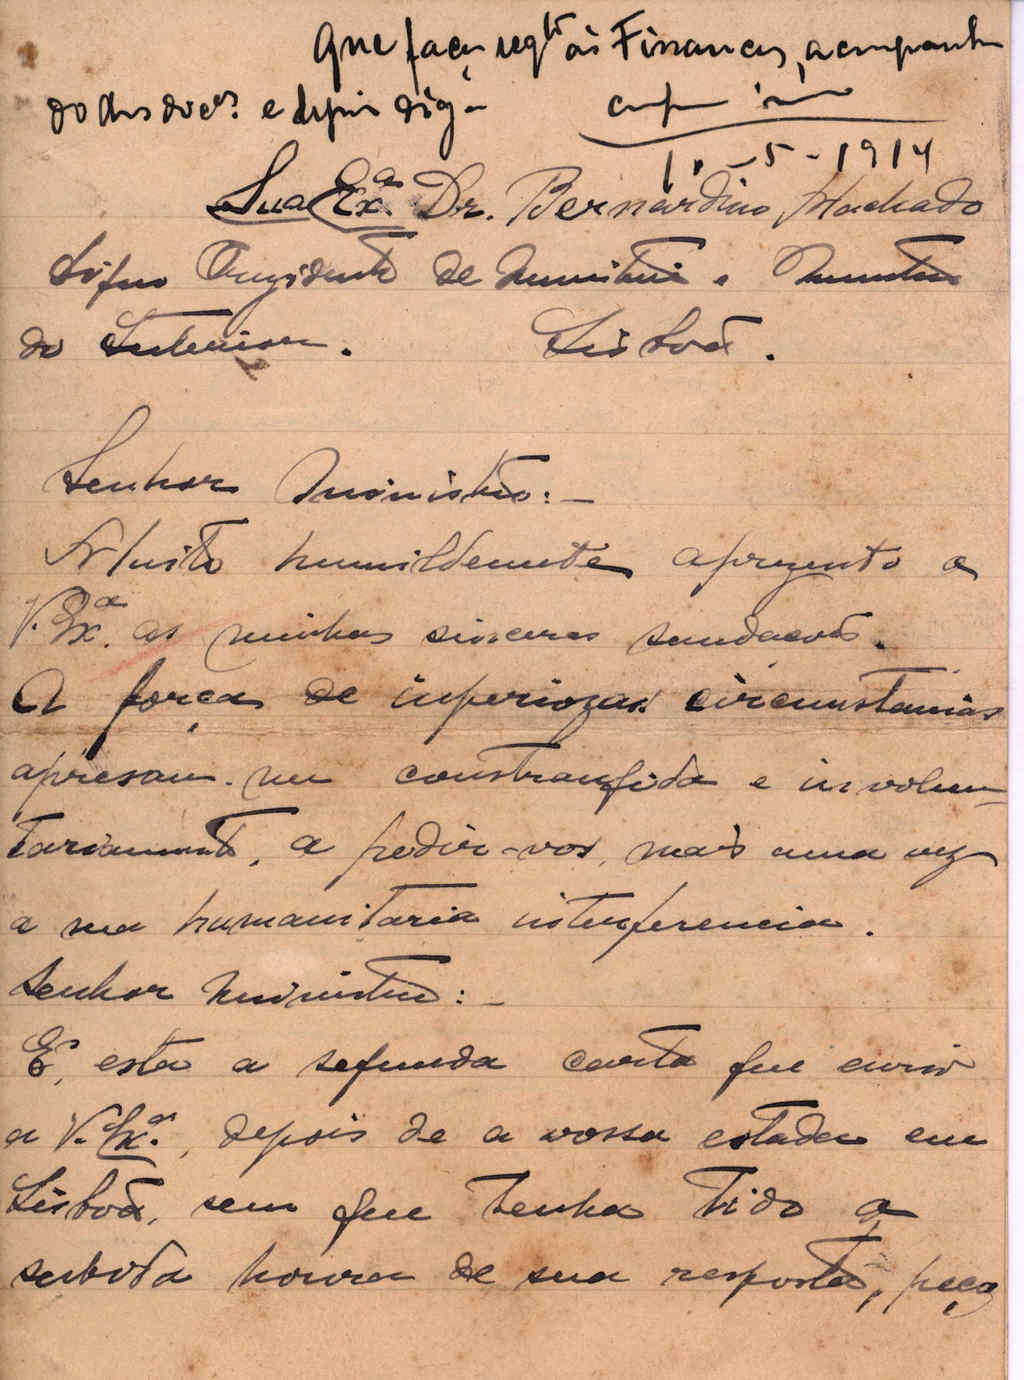 Que faça reqto ás Finanças, acompanha
do dos docs. e depois dig-
1 - 5 - 1914
Sua Exa. Dr. Bernardino Machado
Digno Prezidente de Ministros e Ministro
do Interior. Lisboa.
Senhor Ministro: -
Muito humildemente aprezento a
V. Exa. as minhas sinceras saudacoes.
A força de imperiozas circumstancias
apresam-me constrangida e involun-
tariamente, a pedir-vos, mais uma vez
a sua humanitaria interferencia.
Senhor Ministro: -
É, esta a segunda carta que envio
a V. Exa., depois de a vossa estada em
Lisboa, sem que tenha tido a
subida honra de sua resposta, peço